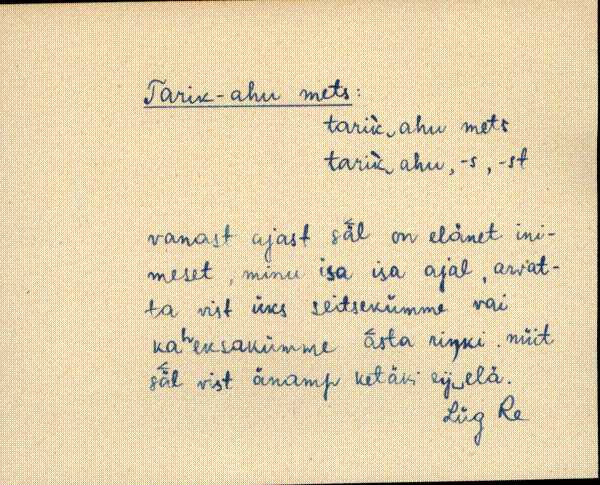 Tarik-ahu mets:
tarik̀‿ahu mets
tarik̀‿ahu, -s, -st
vanast ajast sä̆l on elänet ini-
meset, minu isa isa ajal, arvat-
ta vist üks seitsekümme vai
kaʰeksakümme ästa riŋki. nüit
sä̆l vist änamp ketäki ei‿elä.
Lüg Re